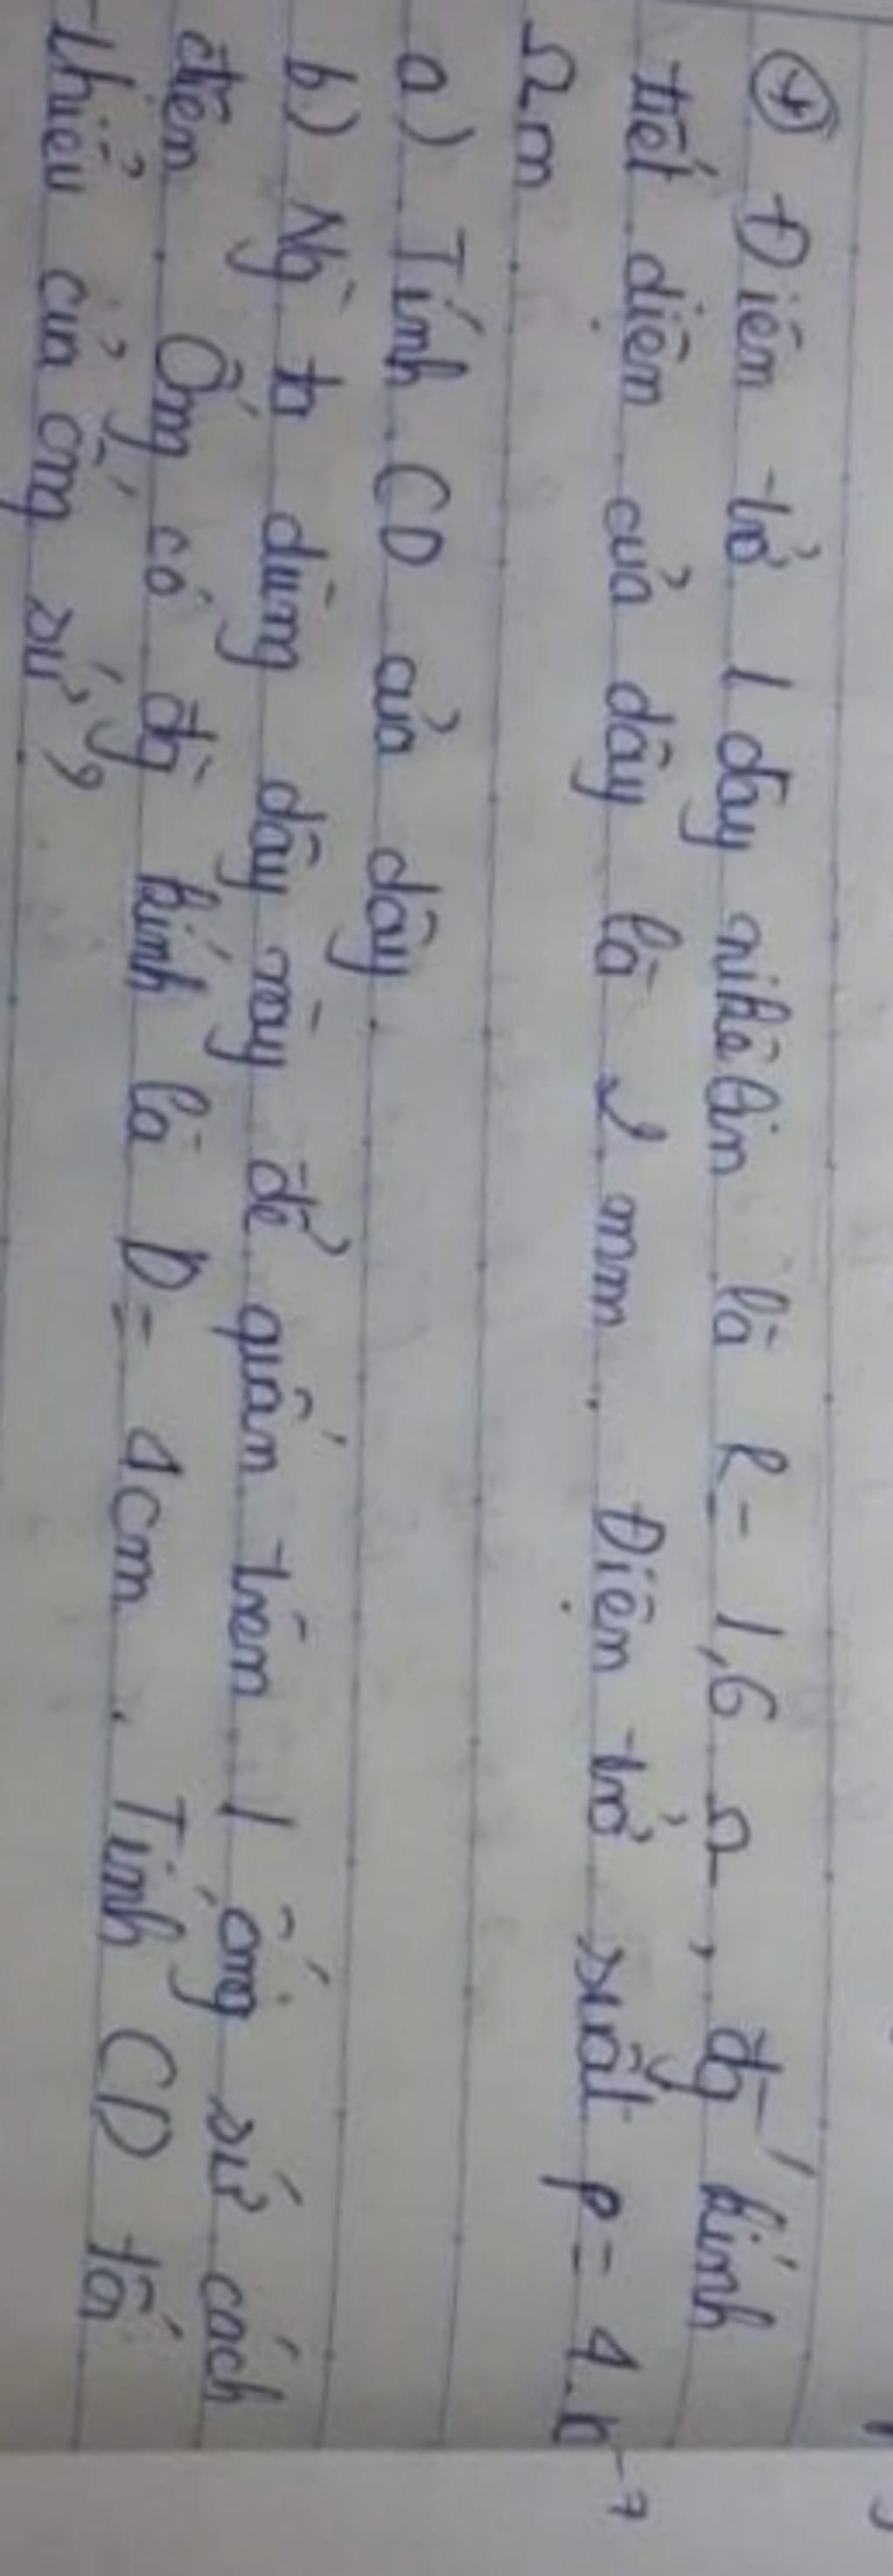 + Điện trở 1 dây nikêlin là R = 1,6 Ω, đg kính
tiết diện của dây là 2 mm. Điện trở suất ρ = 4.10⁻⁷
Ωm
a) Tính CD của dây.
b) Ng ta dùng dây này để quấn trên 1 ống sứ cách
điện. Ống có đg kính là D = 4cm. Tính CD tối
thiểu của ống sứ?